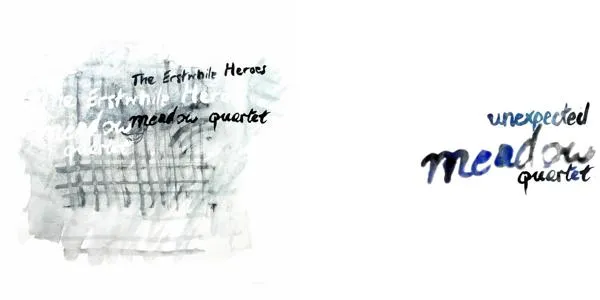 The Erstwhile Heroes
meadow quartet
The Erstwhile Heroes
meadow
quartet
unexpected
meadow
quartet